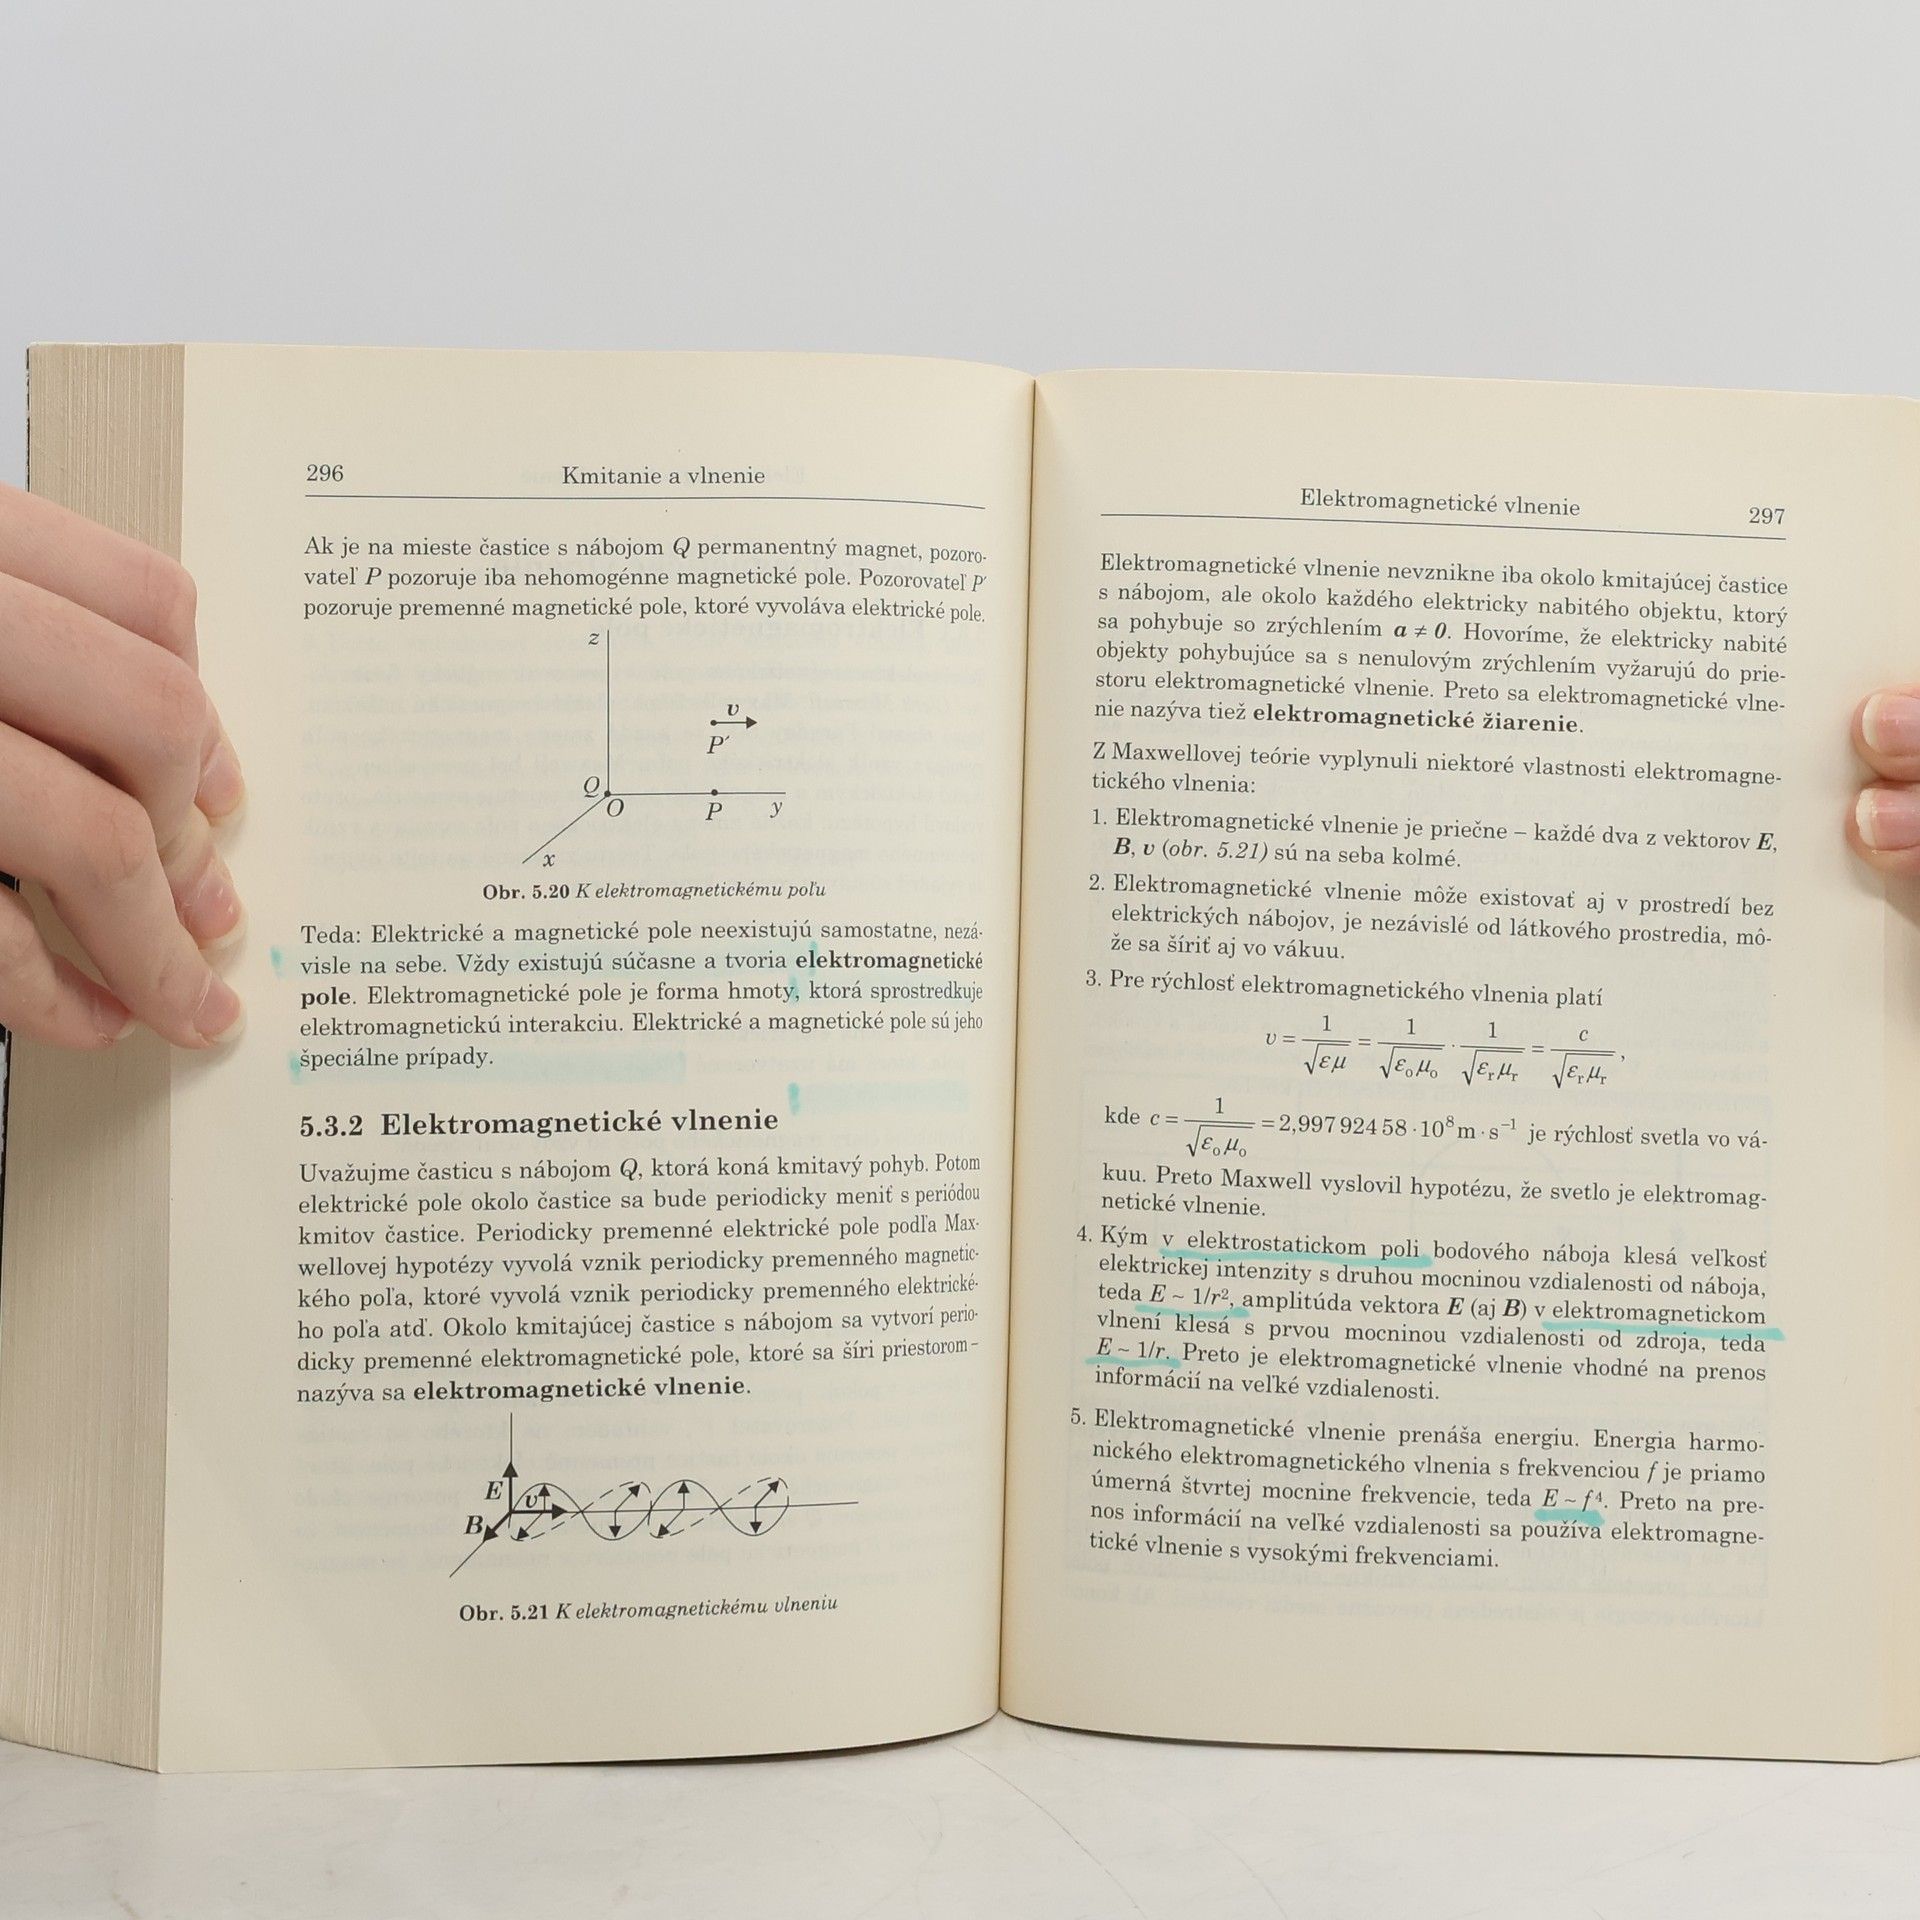 296 Kmitanie a vlnenie
Ak je na mieste častice s nábojom Q permanentný magnet, pozoro-
vateľ P pozoruje iba nehomogénne magnetické pole. Pozorovateľ P′
pozoruje premenné magnetické pole, ktoré vyvoláva elektrické pole.
z
v
P′
Q
O P y
x
Obr. 5.20 K elektromagnetickému poľu
Teda: Elektrické a magnetické pole neexistujú samostatne, nezá-
visle na sebe. Vždy existujú súčasne a tvoria elektromagnetické
pole. Elektromagnetické pole je forma hmoty, ktorá sprostredkuje
elektromagnetickú interakciu. Elektrické a magnetické pole sú jeho
špeciálne prípady.
5.3.2 Elektromagnetické vlnenie
Uvažujme časticu s nábojom Q, ktorá koná kmitavý pohyb. Potom
elektrické pole okolo častice sa bude periodicky meniť s periódou
kmitov častice. Periodicky premenné elektrické pole podľa Max-
wellovej hypotézy vyvolá vznik periodicky premenného magnetic-
kého poľa, ktoré vyvolá vznik periodicky premenného elektrické-
ho poľa atď. Okolo kmitajúcej častice s nábojom sa vytvorí perio-
dicky premenné elektromagnetické pole, ktoré sa šíri priestorom –
nazýva sa elektromagnetické vlnenie.
E v
B
Obr. 5.21 K elektromagnetickému vlneniu
Elektromagnetické vlnenie 297
Elektromagnetické vlnenie nevznikne iba okolo kmitajúcej častice
s nábojom, ale okolo každého elektricky nabitého objektu, ktorý
sa pohybuje so zrýchlením a ≠ 0. Hovoríme, že elektricky nabité
objekty pohybujúce sa s nenulovým zrýchlením vyžarujú do prie-
storu elektromagnetické vlnenie. Preto sa elektromagnetické vlne-
nie nazýva tiež elektromagnetické žiarenie.
Z Maxwellovej teórie vyplynuli niektoré vlastnosti elektromagne-
tického vlnenia:
1. Elektromagnetické vlnenie je priečne – každé dva z vektorov E,
B, v (obr. 5.21) sú na seba kolmé.
2. Elektromagnetické vlnenie môže existovať aj v prostredí bez
elektrických nábojov, je nezávislé od látkového prostredia, mô-
že sa šíriť aj vo vákuu.
3. Pre rýchlosť elektromagnetického vlnenia platí
v = 1/√(εμ) = 1/√(ε₀μ₀) · 1/√(εᵣμᵣ) = c/√(εᵣμᵣ) ,
kde c = 1/√(ε₀μ₀) = 2,997 924 58 · 10⁸ m · s⁻¹ je rýchlosť svetla vo vá-
kuu. Preto Maxwell vyslovil hypotézu, že svetlo je elektromag-
netické vlnenie.
4. Kým v elektrostatickom poli bodového náboja klesá veľkosť
elektrickej intenzity s druhou mocninou vzdialenosti od náboja,
teda E ~ 1/r², amplitúda vektora E (aj B) v elektromagnetickom
vlnení klesá s prvou mocninou vzdialenosti od zdroja, teda
E ~ 1/r. Preto je elektromagnetické vlnenie vhodné na prenos
informácií na veľké vzdialenosti.
5. Elektromagnetické vlnenie prenáša energiu. Energia harmo-
nického elektromagnetického vlnenia s frekvenciou f je priamo
úmerná štvrtej mocnine frekvencie, teda E ~ f⁴. Preto na pre-
nos informácií na veľké vzdialenosti sa používa elektromagne-
tické vlnenie s vysokými frekvenciami.